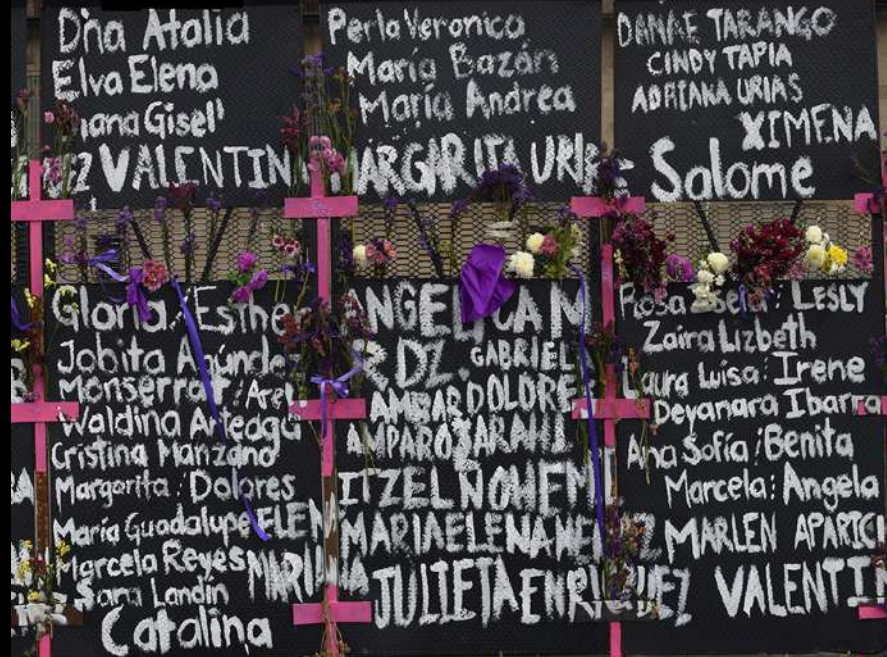 Dña Atalia
Elva Elena
iana Gisel
EZ VALENTIN
Perla Veronica
María Bazán
María Andrea
MARGARITA URI
DANAE TARANGO
CINDY TAPIA
ADRIANA URIAS
XIMENA
Salome
Gloria Esther
Jobita
Monserrat
Waldina Arteaga
Cristina Manzano
Margarita Dolores
María Guadalupe ELEN
Marcela Reyes
Sara Landín
Catalina
ANGELICA
RDZ. GABRIEL
AMBAR DOLORE
AMPARO
ITZEL NOHEM
MARIAELENA
JULIETA ENRIQUEZ
Rosa LESLY
Zaira Lizbeth
Laura Luisa Irene
Deyanara Ibarra
Ana Sofía Benita
Marcela Angela
MARLEN APARICI
VALENTI